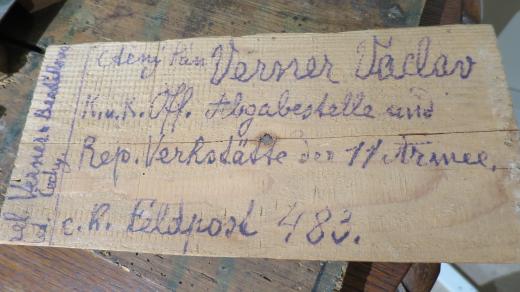 Ctěný Pán Verner Václav
K.u.K. Off. Abgabestelle und
Rep. Verkstätte der 11 Armee.
c. k. Feldpost 483.
Verner